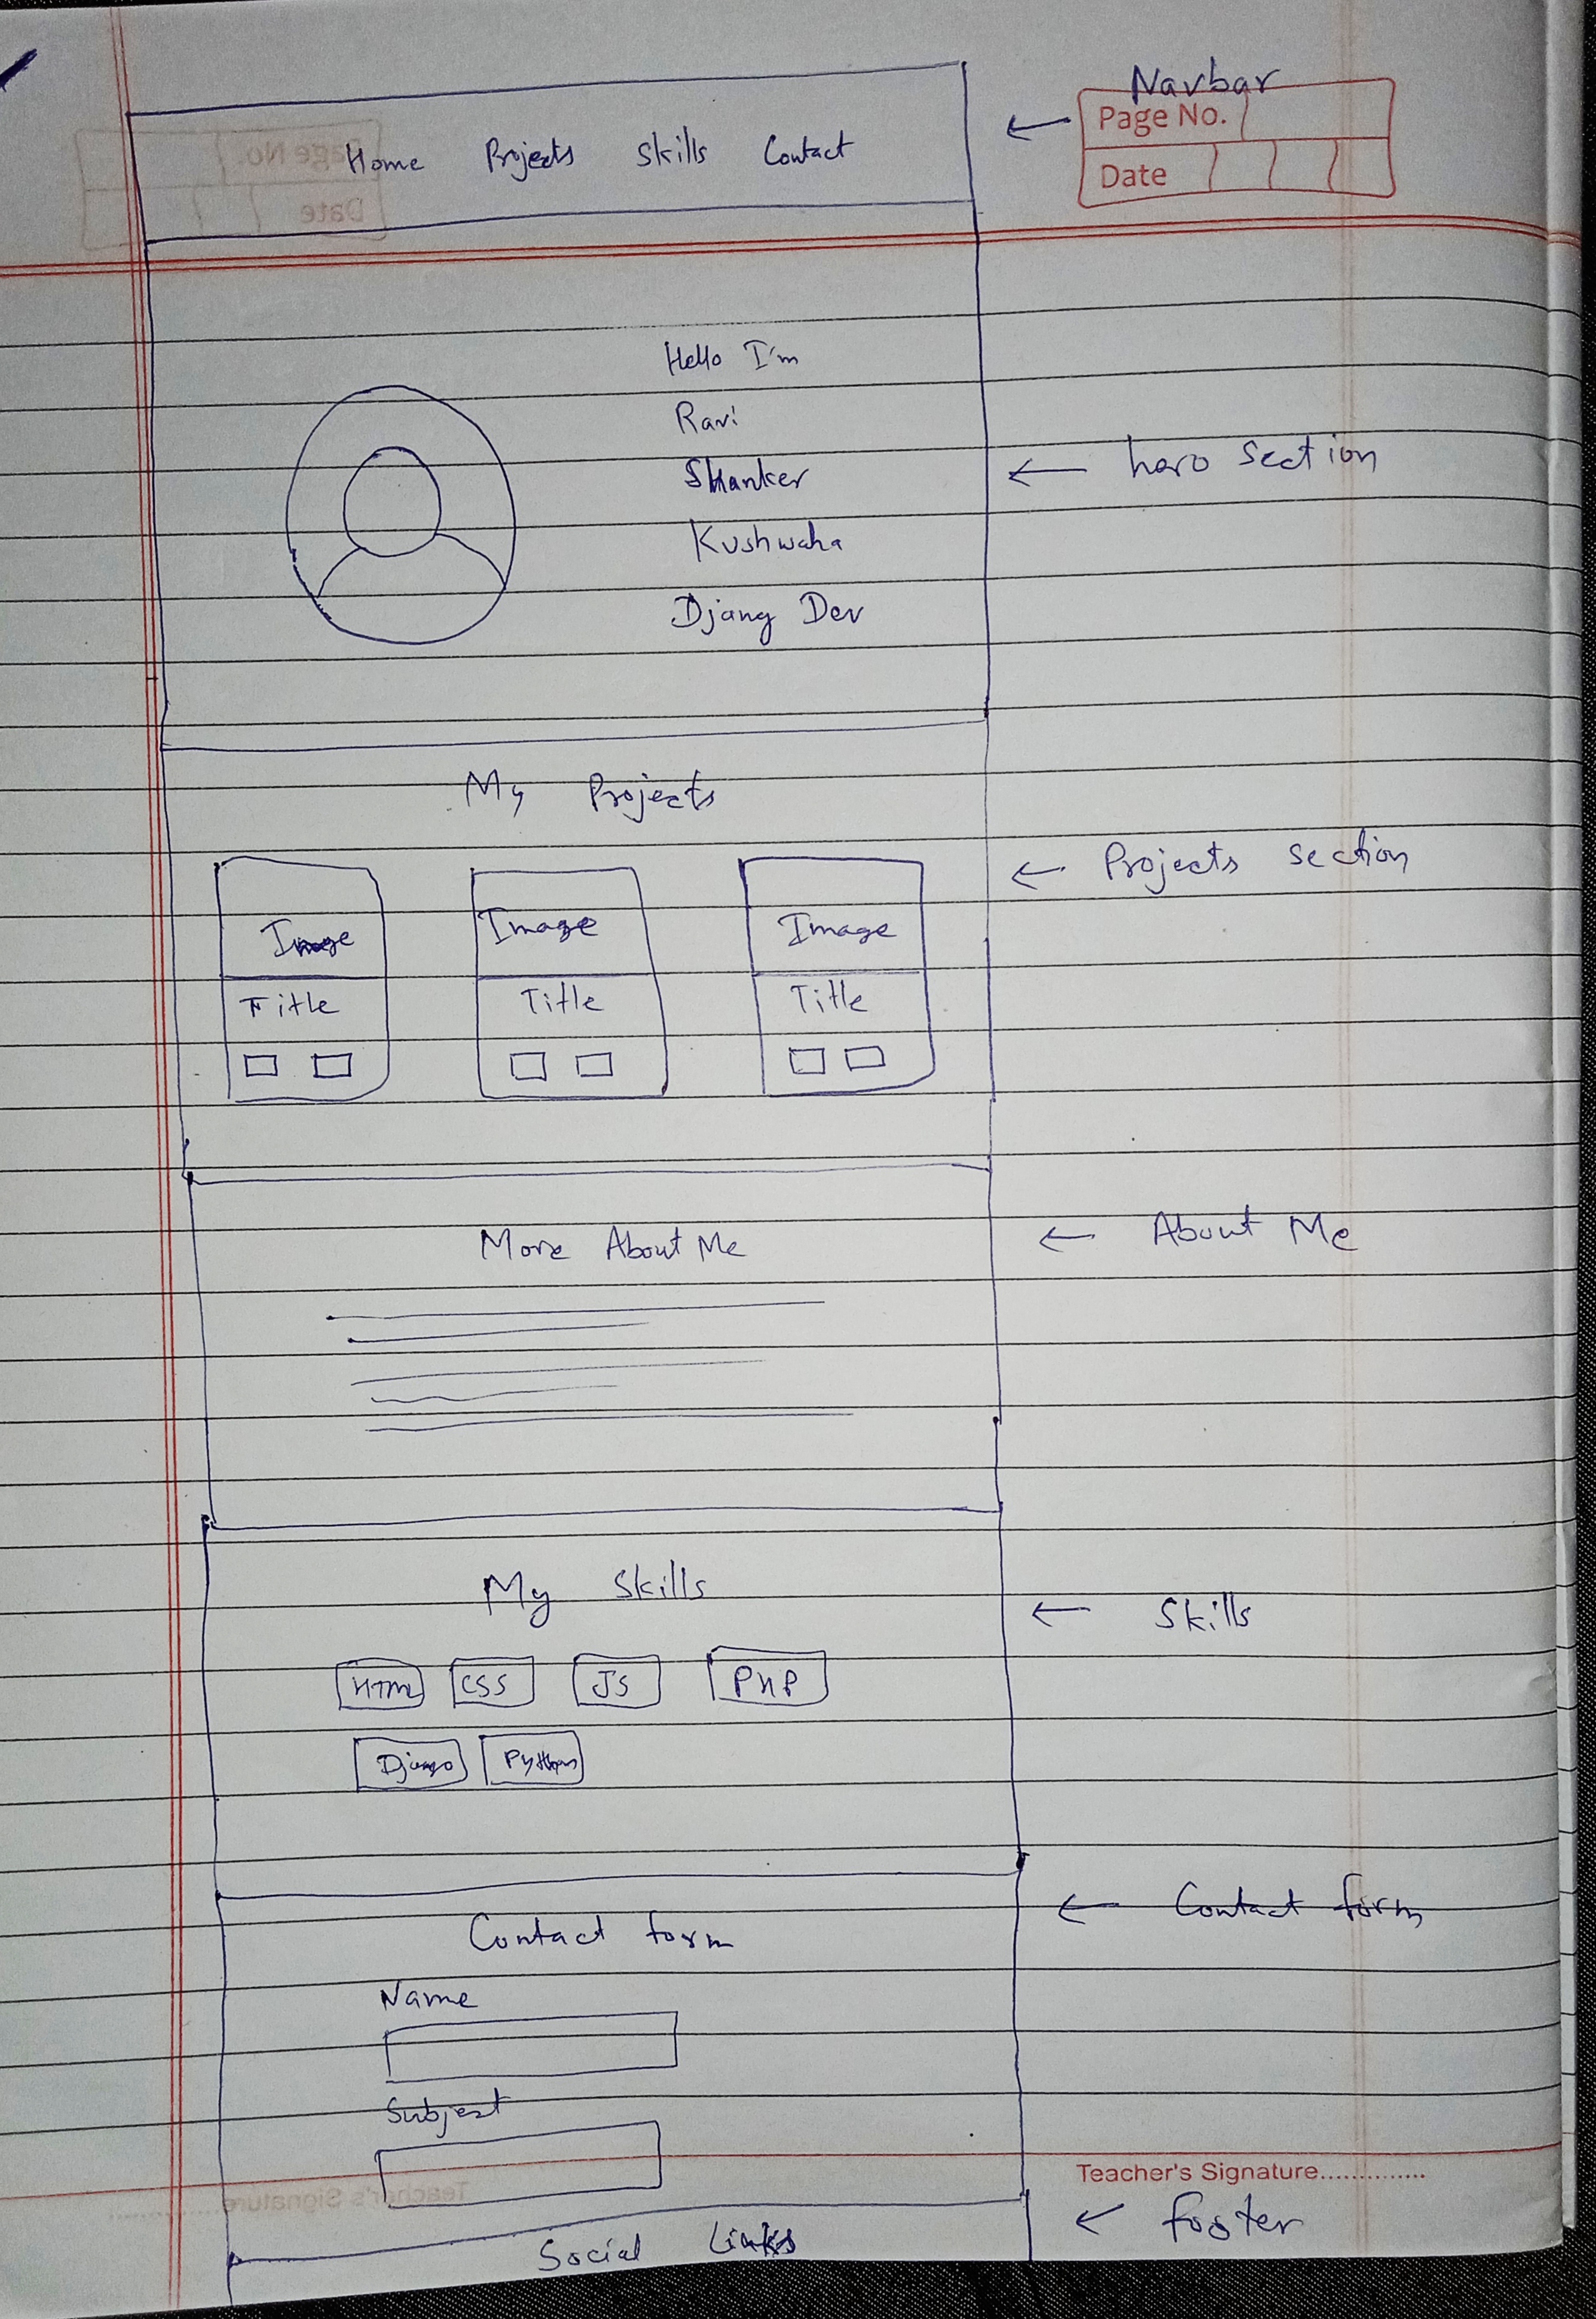 Navbar
Page No.
Date
Home Projects Skills Contact
Hello I'm
Ravi
Shanker
Kushwaha
Djang Dev
hero section
My Projects
Projects section
Image Image Image
Title Title Title
More About Me
About Me
My Skills
Skills
HTML CSS JS PHP
Django Python
Contact form
Contact form
Name
Subject
Teacher's Signature..............
Social Links
footer